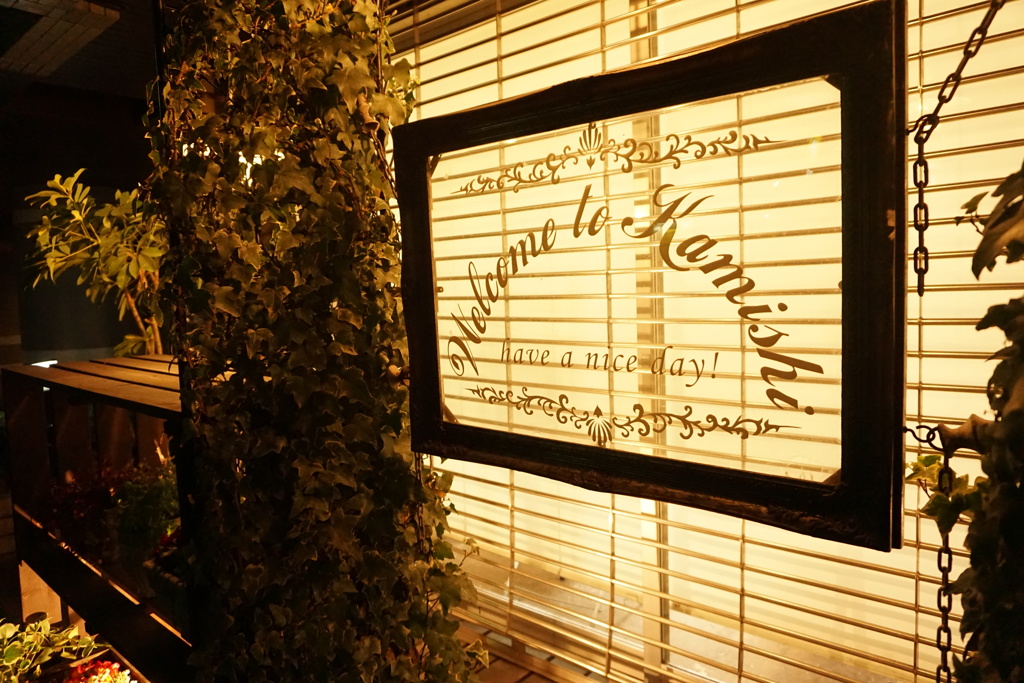 Welcome to Kamishi
have a nice day!